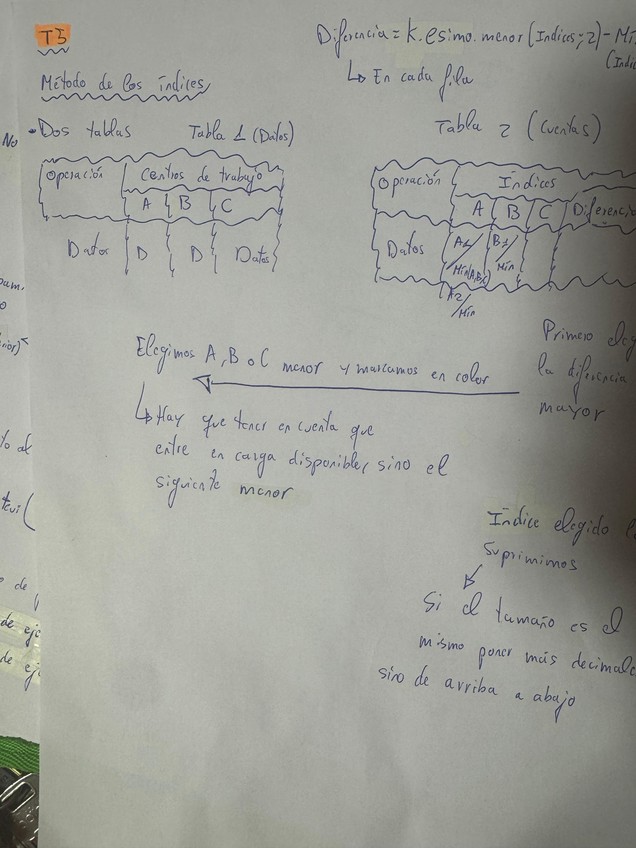 T5
Diferencia = k.esimo.menor (Indices; 2) - Mí
(Indic
↳ En cada fila
Método de los índices
- Dos tablas Tabla 1 (Datos)
Operación Centros de trabajo
A B C
Datos D D Datos
Tabla 2 (Cuentas)
Operación Índices
A B C Diferenci
Datos A1/Mín(A,B,C) B1/Mín
A2/Mín
Primero eleg
la diferencia
mayor
Elegimos A, B o C menor y marcamos en color
↳ Hay que tener en cuenta que
entre en carga disponible, sino el
siguiente menor
Indice elegido l
Suprimimos
Si el tamaño es el
mismo poner más decimale
sino de arriba a abajo
No
to al
de eje
de eje